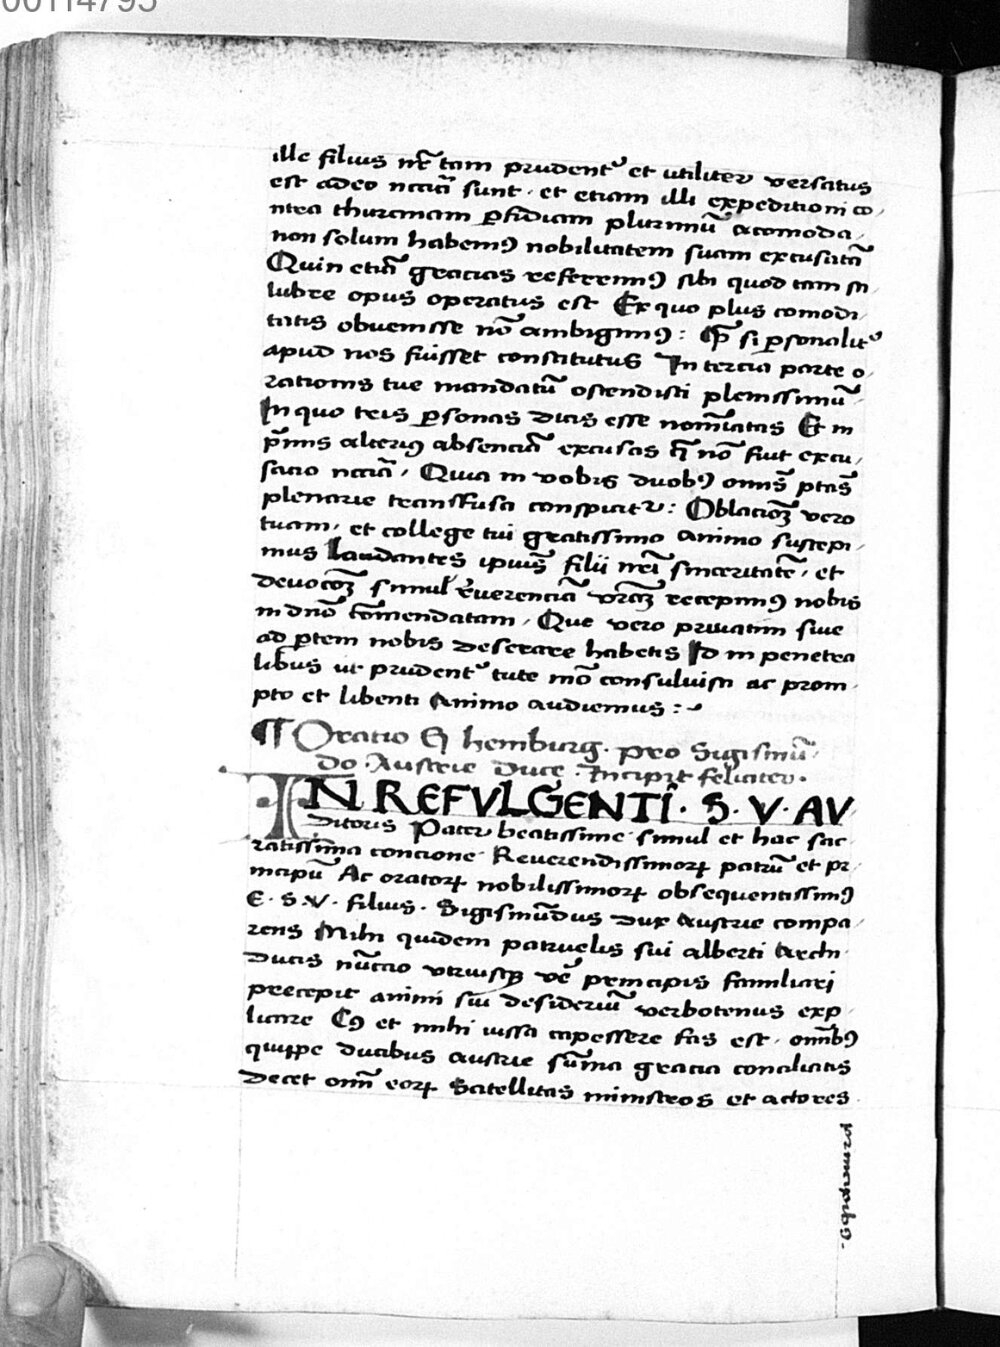 00114795
ille filius nr̃ tam prudentꝰ et utiliter versatus
est adeo nacti sunt · et etiam illi expeditioni co,
ntra thurcmam ꝑfidiam plurimũ acomoda,
non solum habemꝰ nobilitatem suam excusatã
Quin etiã gracias referemꝰ sibi quod tam sa,
lubre opus operatus est Ex quo plus comodi,
tatis obuenisse nõ ambigimꝰ : Qͫ si ꝑsonalitꝰ
apud nos fuisset constitutus In tercia parte o,
rationis tue mandatũ ostendisti plenissimũ,
In quo tris ꝑsonas dicis esse nomĩatas Et in
pͥmis alteriꝰ absenciã excusas q̃ nõ fuit excu,
sacio ncciã, Quia in vobis duobꝰ omĩs ptãs
plenarie transfusa conspicitr : Oblaciõꝫ vero
tuam, et college tui gratissimo animo suscepi,
mus Laudantes ipiuš filii nrĩ sinceritatẽ, et
devocõꝫ simul r̃verenciã vrãꝫ recepimꝰ nobis
in dnõ cõmendatam, Que vero priuatim siue
ad ꝑtem nobis deserare habetis Id in penetra
libus ut prudentꝰ tute mõ consuluisti ac prom,
pto et libenti Animo audiemus : ~
¶ Oratio G hemburg · pro Sigismũ,
do Austrie Duce · Incipit feliciter ·
IN REFVLGENTĨ · S · V · AV
ditoris Pater beatissime simul et hac sac,
ratissĩma concione Reuerendissimoꝝ patrũ et pr,
incipũ Ac oratoꝝ nobilissimoꝝ obsequentissimꝰ
E · S · V · filius · Sigismũdus dux Austrie compa,
rens Mihi quidem patruelis sui alberti Archi,
ducis nũccio vtriusqꝫ vẽ principis familiari
precepit animi sui desideriũ verbotenus exp,
licare Cꝰ et mihi iussa capessere fas est, omĩbꝰ
quippe ducibus austrie sũma gracia conciliatis
Decet omĩ eoꝝ Satellitas ministros et actores